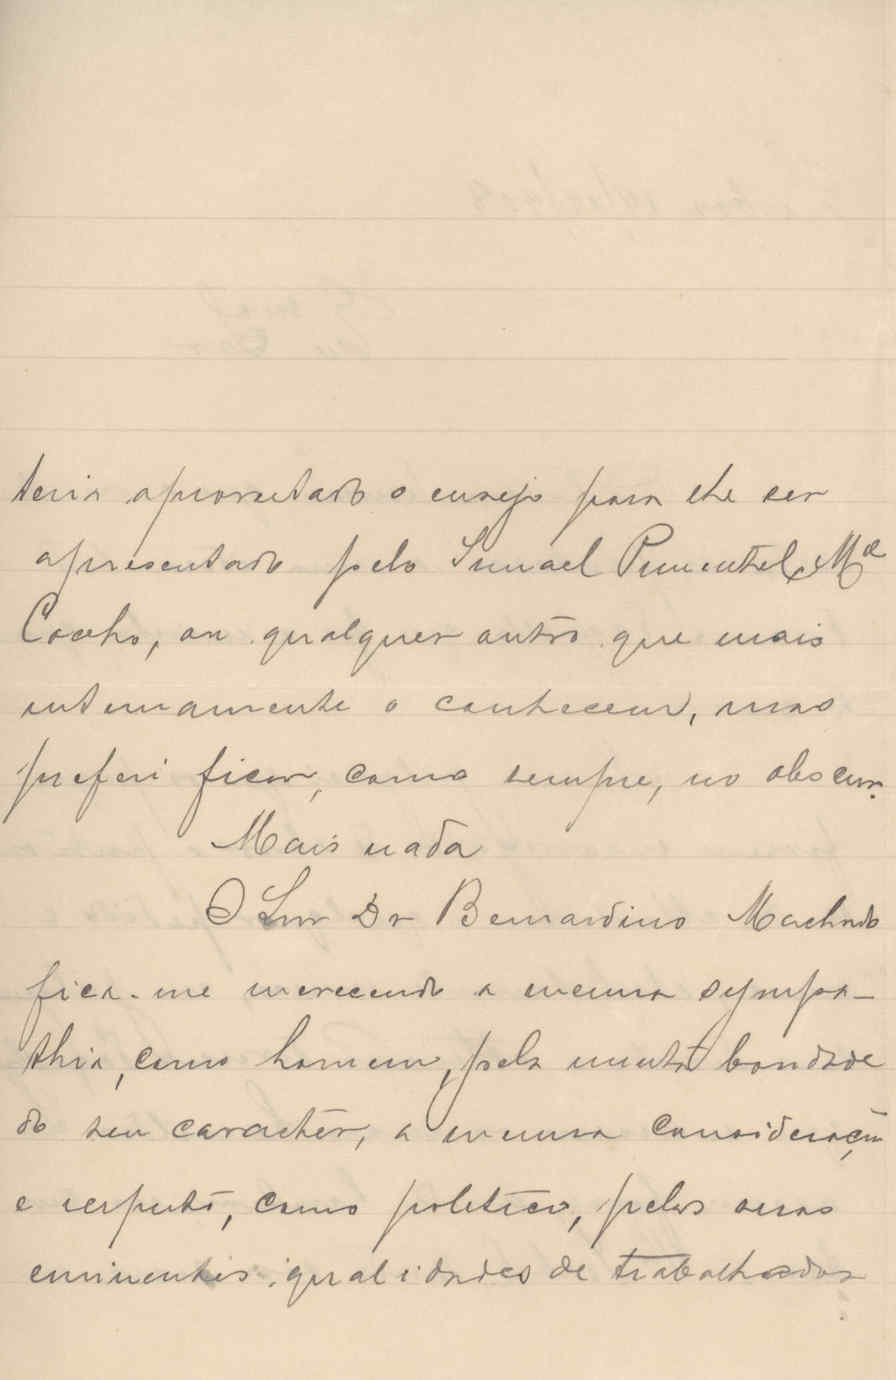 teria aproveitado o ensejo para lhe ser
apresentado pelo Ismael Pimentel, Mel
Coelho, ou qualquer outro que mais
intimamente o conhecesse, mas
preferi ficar, como sempre, no obscuro.
Mais nada
O Snr Dr Bernardino Machado
fica-me merecendo a mesma sympa-
thia, como homem, pela muita bondade
do seu caracter, a mesma consideração
e respeito, como politico, pelas suas
eminentes qualidades de trabalhador